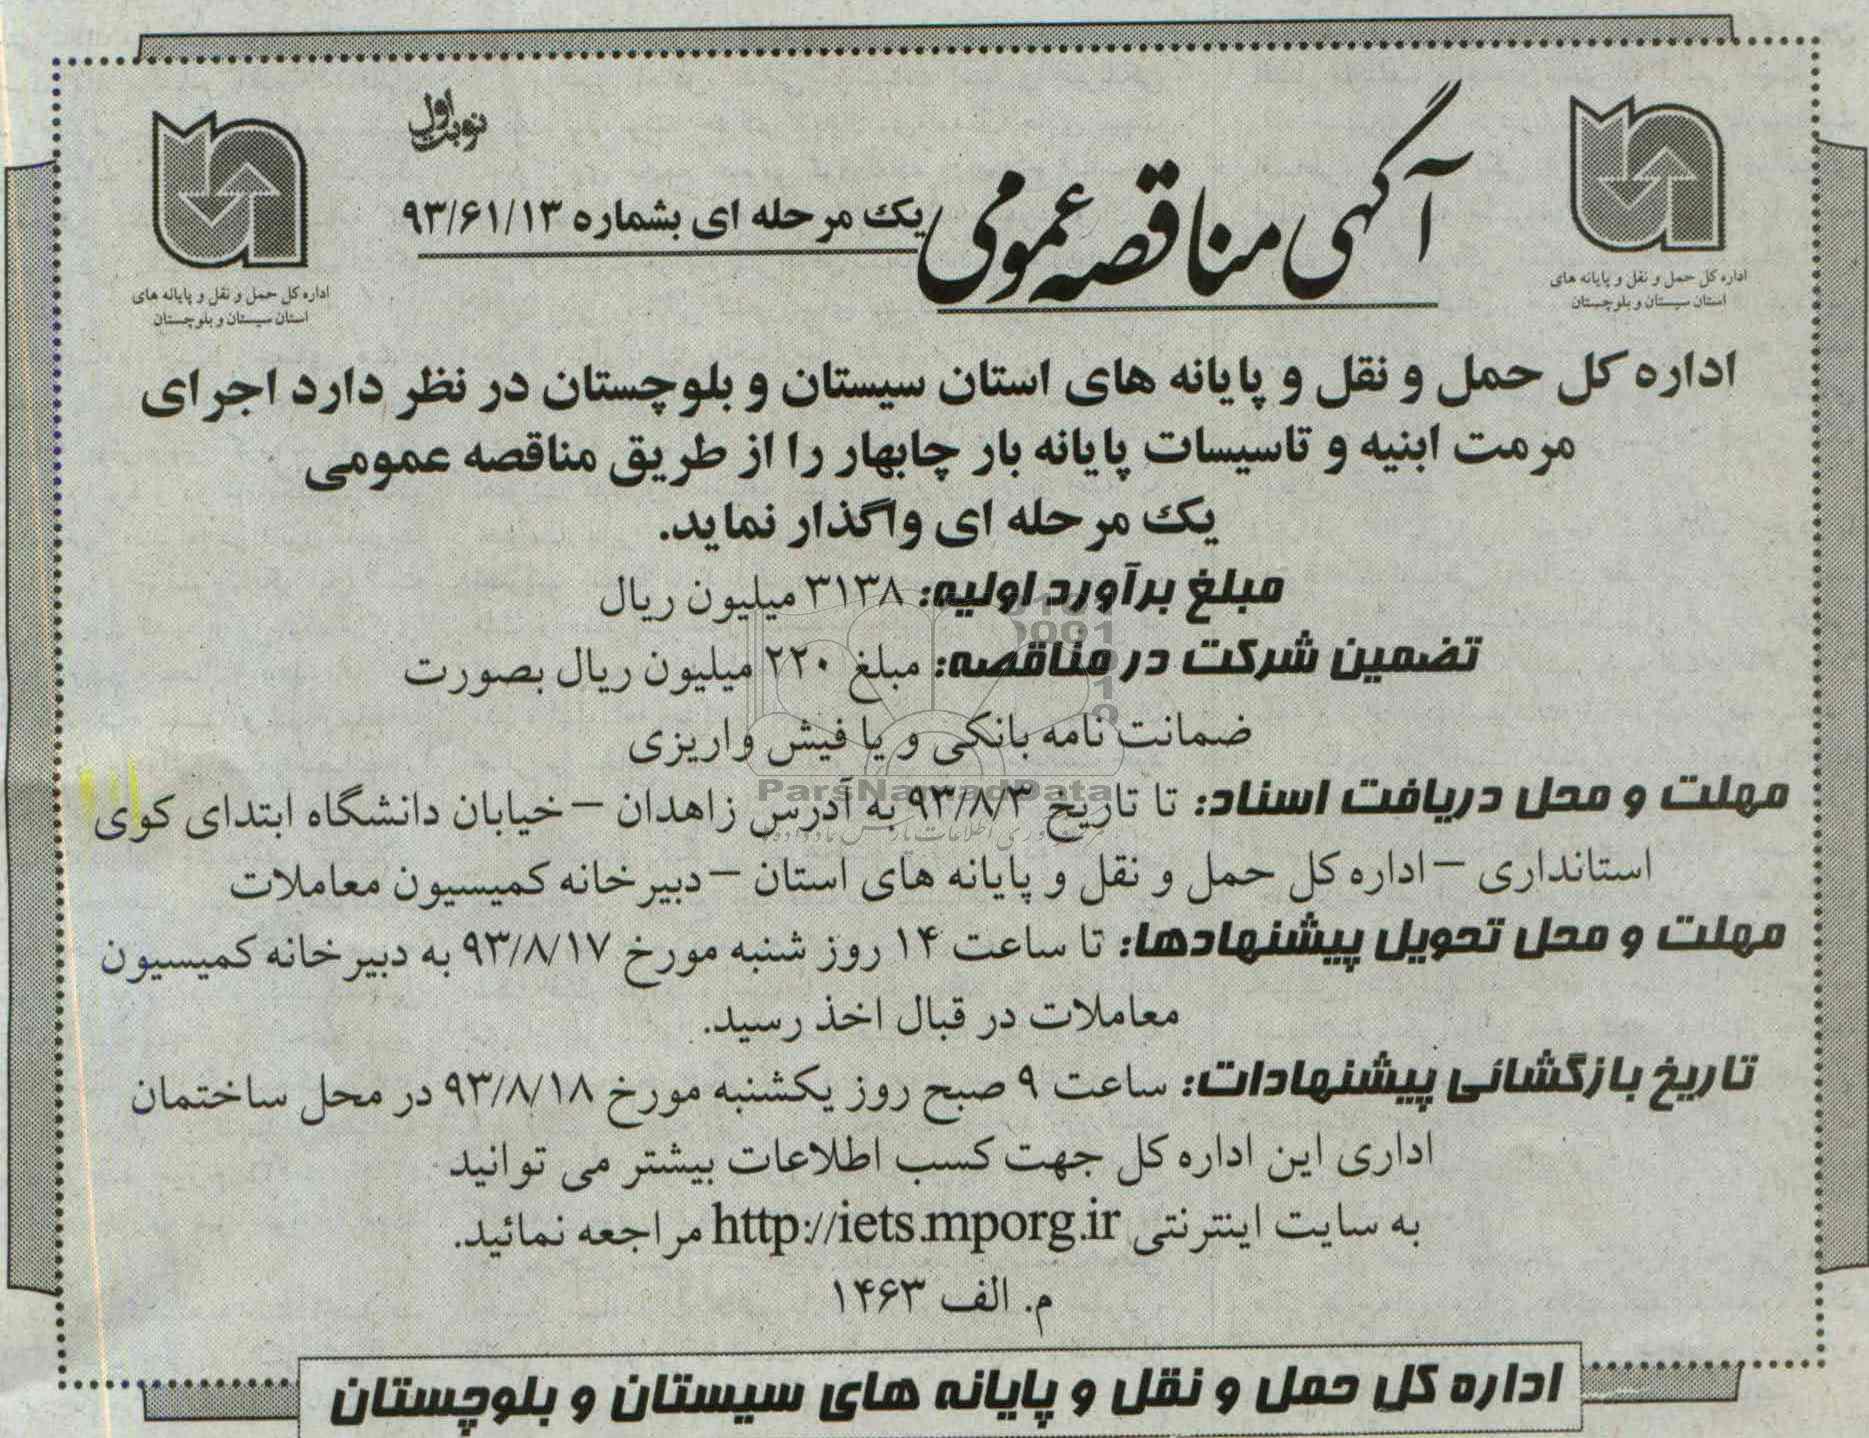 نوبت اول
آگهی مناقصه عمومی یک مرحله ای بشماره ۹۳/۶۱/۱۳
اداره کل حمل و نقل و پایانه های
استان سیستان و بلوچستان
اداره کل حمل و نقل و پایانه های
استان سیستان و بلوچستان
اداره کل حمل و نقل و پایانه های استان سیستان و بلوچستان در نظر دارد اجرای
مرمت ابنیه و تاسیسات پایانه بار چابهار را از طریق مناقصه عمومی
یک مرحله ای واگذار نماید.
مبلغ برآورد اولیه: ۳۱۳۸ میلیون ریال
تضمین شرکت در مناقصه: مبلغ ۲۲۰ میلیون ریال بصورت
ضمانت نامه بانکی و یا فیش واریزی
ParsNamadData
مهلت و محل دریافت اسناد: تا تاریخ ۹۳/۸/۳ به آدرس زاهدان – خیابان دانشگاه ابتدای کوی
استانداری – اداره کل حمل و نقل و پایانه های استان – دبیرخانه کمیسیون معاملات
مهلت و محل تحویل پیشنهادها: تا ساعت ۱۴ روز شنبه مورخ ۹۳/۸/۱۷ به دبیرخانه کمیسیون
معاملات در قبال اخذ رسید.
تاریخ بازگشائی پیشنهادات: ساعت ۹ صبح روز یکشنبه مورخ ۹۳/۸/۱۸ در محل ساختمان
اداری این اداره کل جهت کسب اطلاعات بیشتر می توانید
به سایت اینترنتی http://iets.mporg.ir مراجعه نمائید.
م. الف ۱۴۶۳
اداره کل حمل و نقل و پایانه های سیستان و بلوچستان